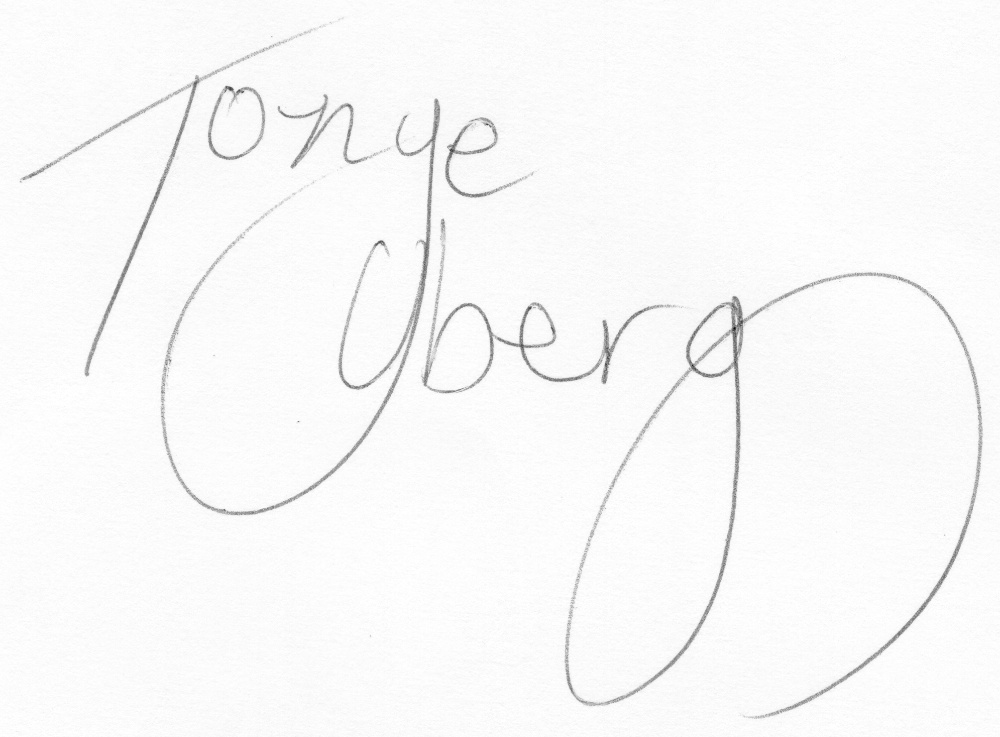 Tonye
Uberg